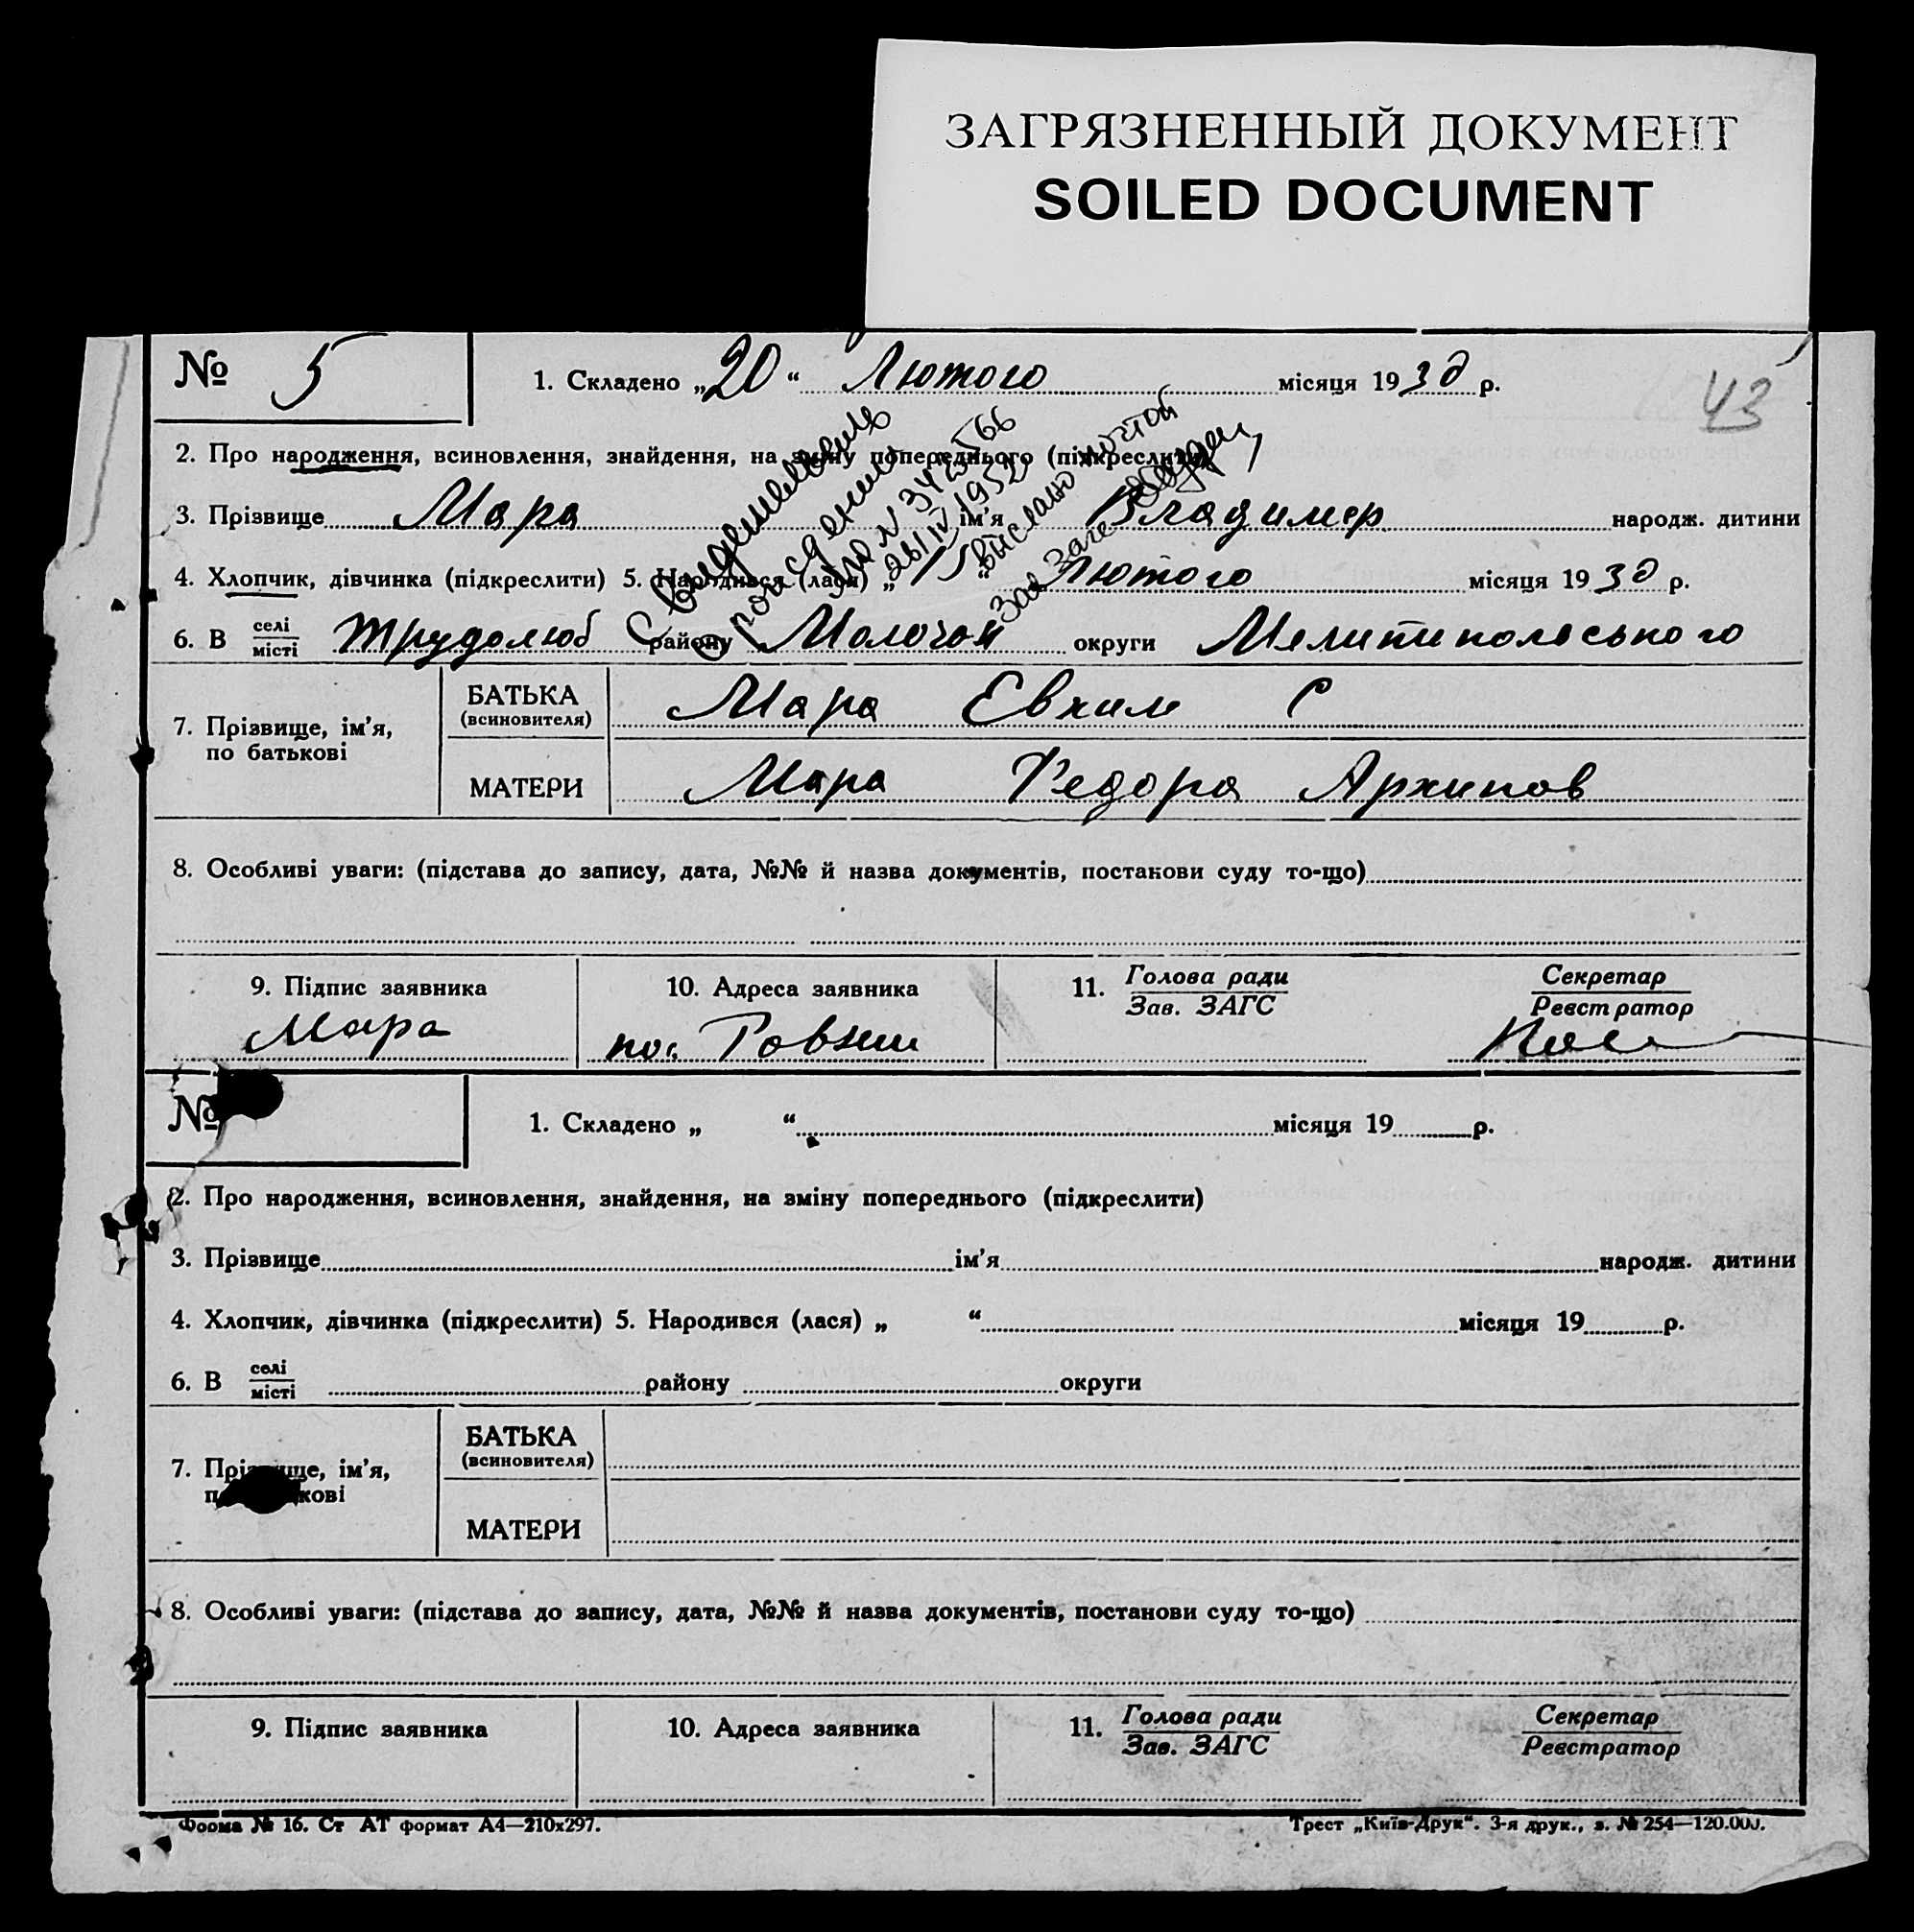 ЗАГРЯЗНЕННЫЙ ДОКУМЕНТ
SOILED DOCUMENT
№ 5 1. Складено „20“ Лютого місяця 1930 р.
43
2. Про народження, всиновлення, знайдення, на зміну попереднього (підкреслити)
3. Прізвище Мара ім’я Владимер народж. дитини
4. Хлопчик, дівчинка (підкреслити) 5. Народився (лася) „15“ Лютого місяця 1930 р.
6. В селі/місті Трудолюб району Молочан округи Мелитипольського
Свидетельство
о рождении
№ 3425566
26/IV 1952
выслано почтой
Зав Загс
7. Прізвище, ім’я, по батькові
БАТЬКА (всиновителя) Мара Евхим С
МАТЕРИ Мара Федора Архипов
8. Особливі уваги: (підстава до запису, дата, №№ й назва документів, постанови суду то-що)
9. Підпис заявника 10. Адреса заявника 11. Голова ради/Зав. ЗАГС Секретар/Реєстратор
Мара пос.
№ 1. Складено „ “ місяця 19 р.
2. Про народження, всиновлення, знайдення, на зміну попереднього (підкреслити)
3. Прізвище ім’я народж. дитини
4. Хлопчик, дівчинка (підкреслити) 5. Народився (лася) „ “ місяця 19 р.
6. В селі/місті району округи
7. Прізвище, ім’я,
БАТЬКА (всиновителя)
МАТЕРИ
8. Особливі уваги: (підстава до запису, дата, №№ й назва документів, постанови суду то-що)
9. Підпис заявника 10. Адреса заявника 11. Голова ради/Зав. ЗАГС Секретар/Реєстратор
Форма № 16. Ст АТ формат А4—210х297. Трест „Київ-Друк“. 3-я друк., з. № 254—120.000.